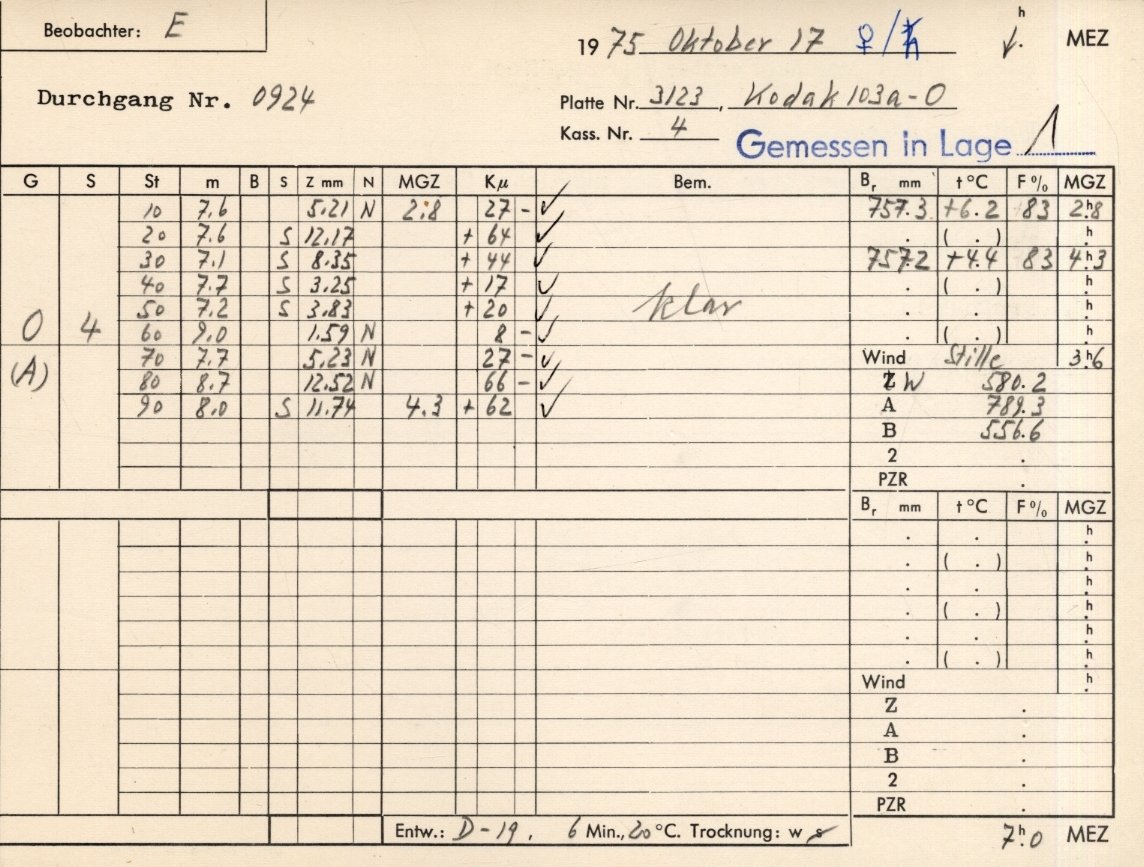 Beobachter: E
1975 Oktober 17 ♀/♄ h . MEZ
Durchgang Nr. 0924
Platte Nr. 3123, Kodak 103a-O
Kass. Nr. 4
Gemessen in Lage 1
G S St m B S Z mm N MGZ Kμ Bem. Br mm t °C F % MGZ
10 7.6 5.21 N 2.8 27 - ✓ 757.3 +6.2 83 2h.8
20 7.6 S 12.17 + 64 ✓ . ( . ) h.
30 7.1 S 8.35 + 44 ✓ 757.2 +4.4 83 4h.3
40 7.7 S 3.25 + 17 ✓ . ( . ) h.
50 7.2 S 3.83 + 20 ✓ klar . . h.
0 4 60 9.0 1.59 N 8 - ✓ . ( . ) h.
70 7.7 5.23 N 27 - ✓ Wind Stille 3h.6
(A) 80 8.7 12.52 N 66 - ✓ Z W 580.2
90 8.0 S 11.74 4.3 + 62 ✓ A 789.3
B 556.6
2 .
PZR .
Br mm t °C F % MGZ
. . h.
. ( . ) h.
. . h.
. ( . ) h.
. . h.
. ( . ) h.
Wind h.
Z .
A .
B .
2 .
PZR .
Entw.: D-19, 6 Min., 20 °C. Trocknung: w s
7h.0 MEZ